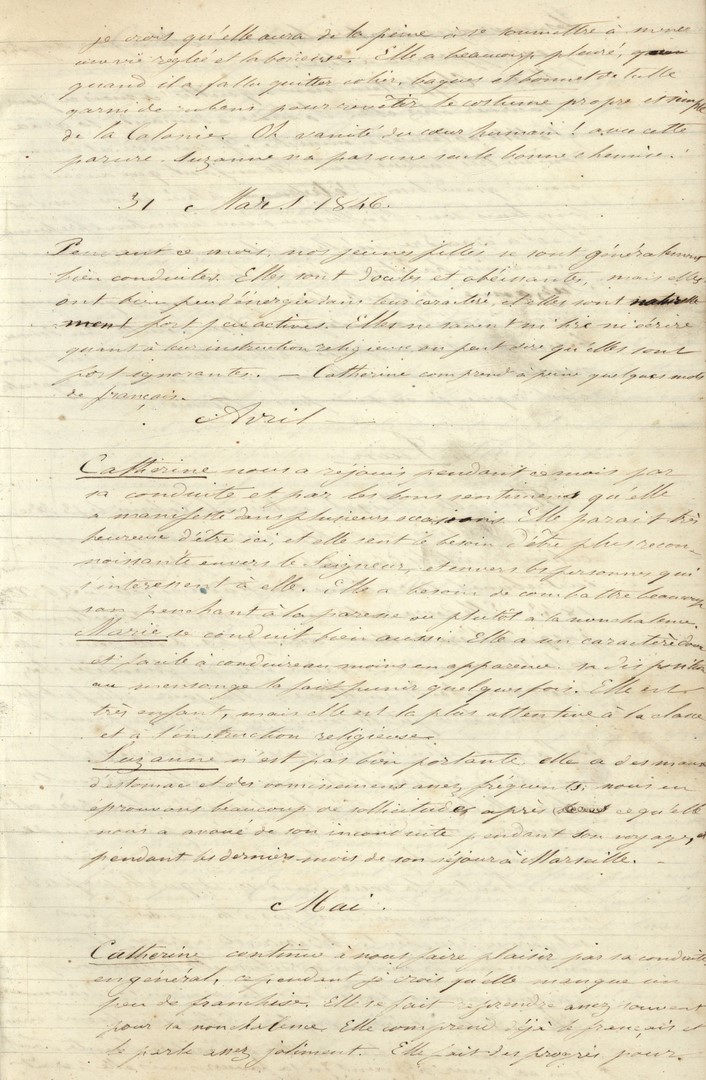 je crois qu'elle aura de la peine à se soumettre à mener
une vie reglée et laborieuse. Elle a beaucoup pleuré,
quand il a fallu quitter colier, bagues et bonnet de tulle
garni de rubens pour revêtir le costume propre et simple
de la Colonie. Oh vanité du cœur humain ! avec cette
parure Suzanne n'a pas une seule bonne chemise.
31 Mars 1846.
Pendant ce mois, nos jeunes filles se sont généralement
bien conduites. Elles sont dociles et obéissantes, mais elles
ont bien peu d'énergie dans leur caractère, et elles sont naturelle
ment fort peu actives. Elles ne savent ni lire ni écrire
quant à leur instruction religieuse on peut dire qu'elles sont
fort ignorantes. — Catherine comprend à peine quelques mots
de français.
Avril
Catherine nous a réjouis pendant ce mois par
sa conduite et par les bons sentimens qu'elle
a manifesté dans plusieurs occasions. Elle parait très
heureuse d'être ici, et elle sent le besoin d'être plus recon-
noissante envers le Seigneur, et envers les personnes qui
s'interessent à elle. Elle a besoin de combattre beaucoup
son penchant à la paresse ou plutôt à la nonchalence.
Marie se conduit bien aussi. Elle a un caractère doux
et facile à conduire au moins en apparence. sa disposition
au mensonge la fait punir quelques fois. Elle est
très enfant, mais elle est la plus attentive à la classe
et à l'instruction religieuse.
Suzanne n'est pas bien portante, elle a des maux
d'estomac et des vomissemens assez fréquents; nous en
éprouvons beaucoup de sollicitudes après ce qu'elle
nous a avoué de son inconduite pendant son voyage, et
pendant les derniers mois de son séjour à Marseille. -
Mai.
Catherine continue à nous faire plaisir par sa conduite
en général, cependant je crois qu'elle manque un
peu de franchise. Elle se fait reprendre assez souvent
pour sa nonchalence. Elle comprend déjà le français et
le parle assez joliment. Elle fait des progrès pour